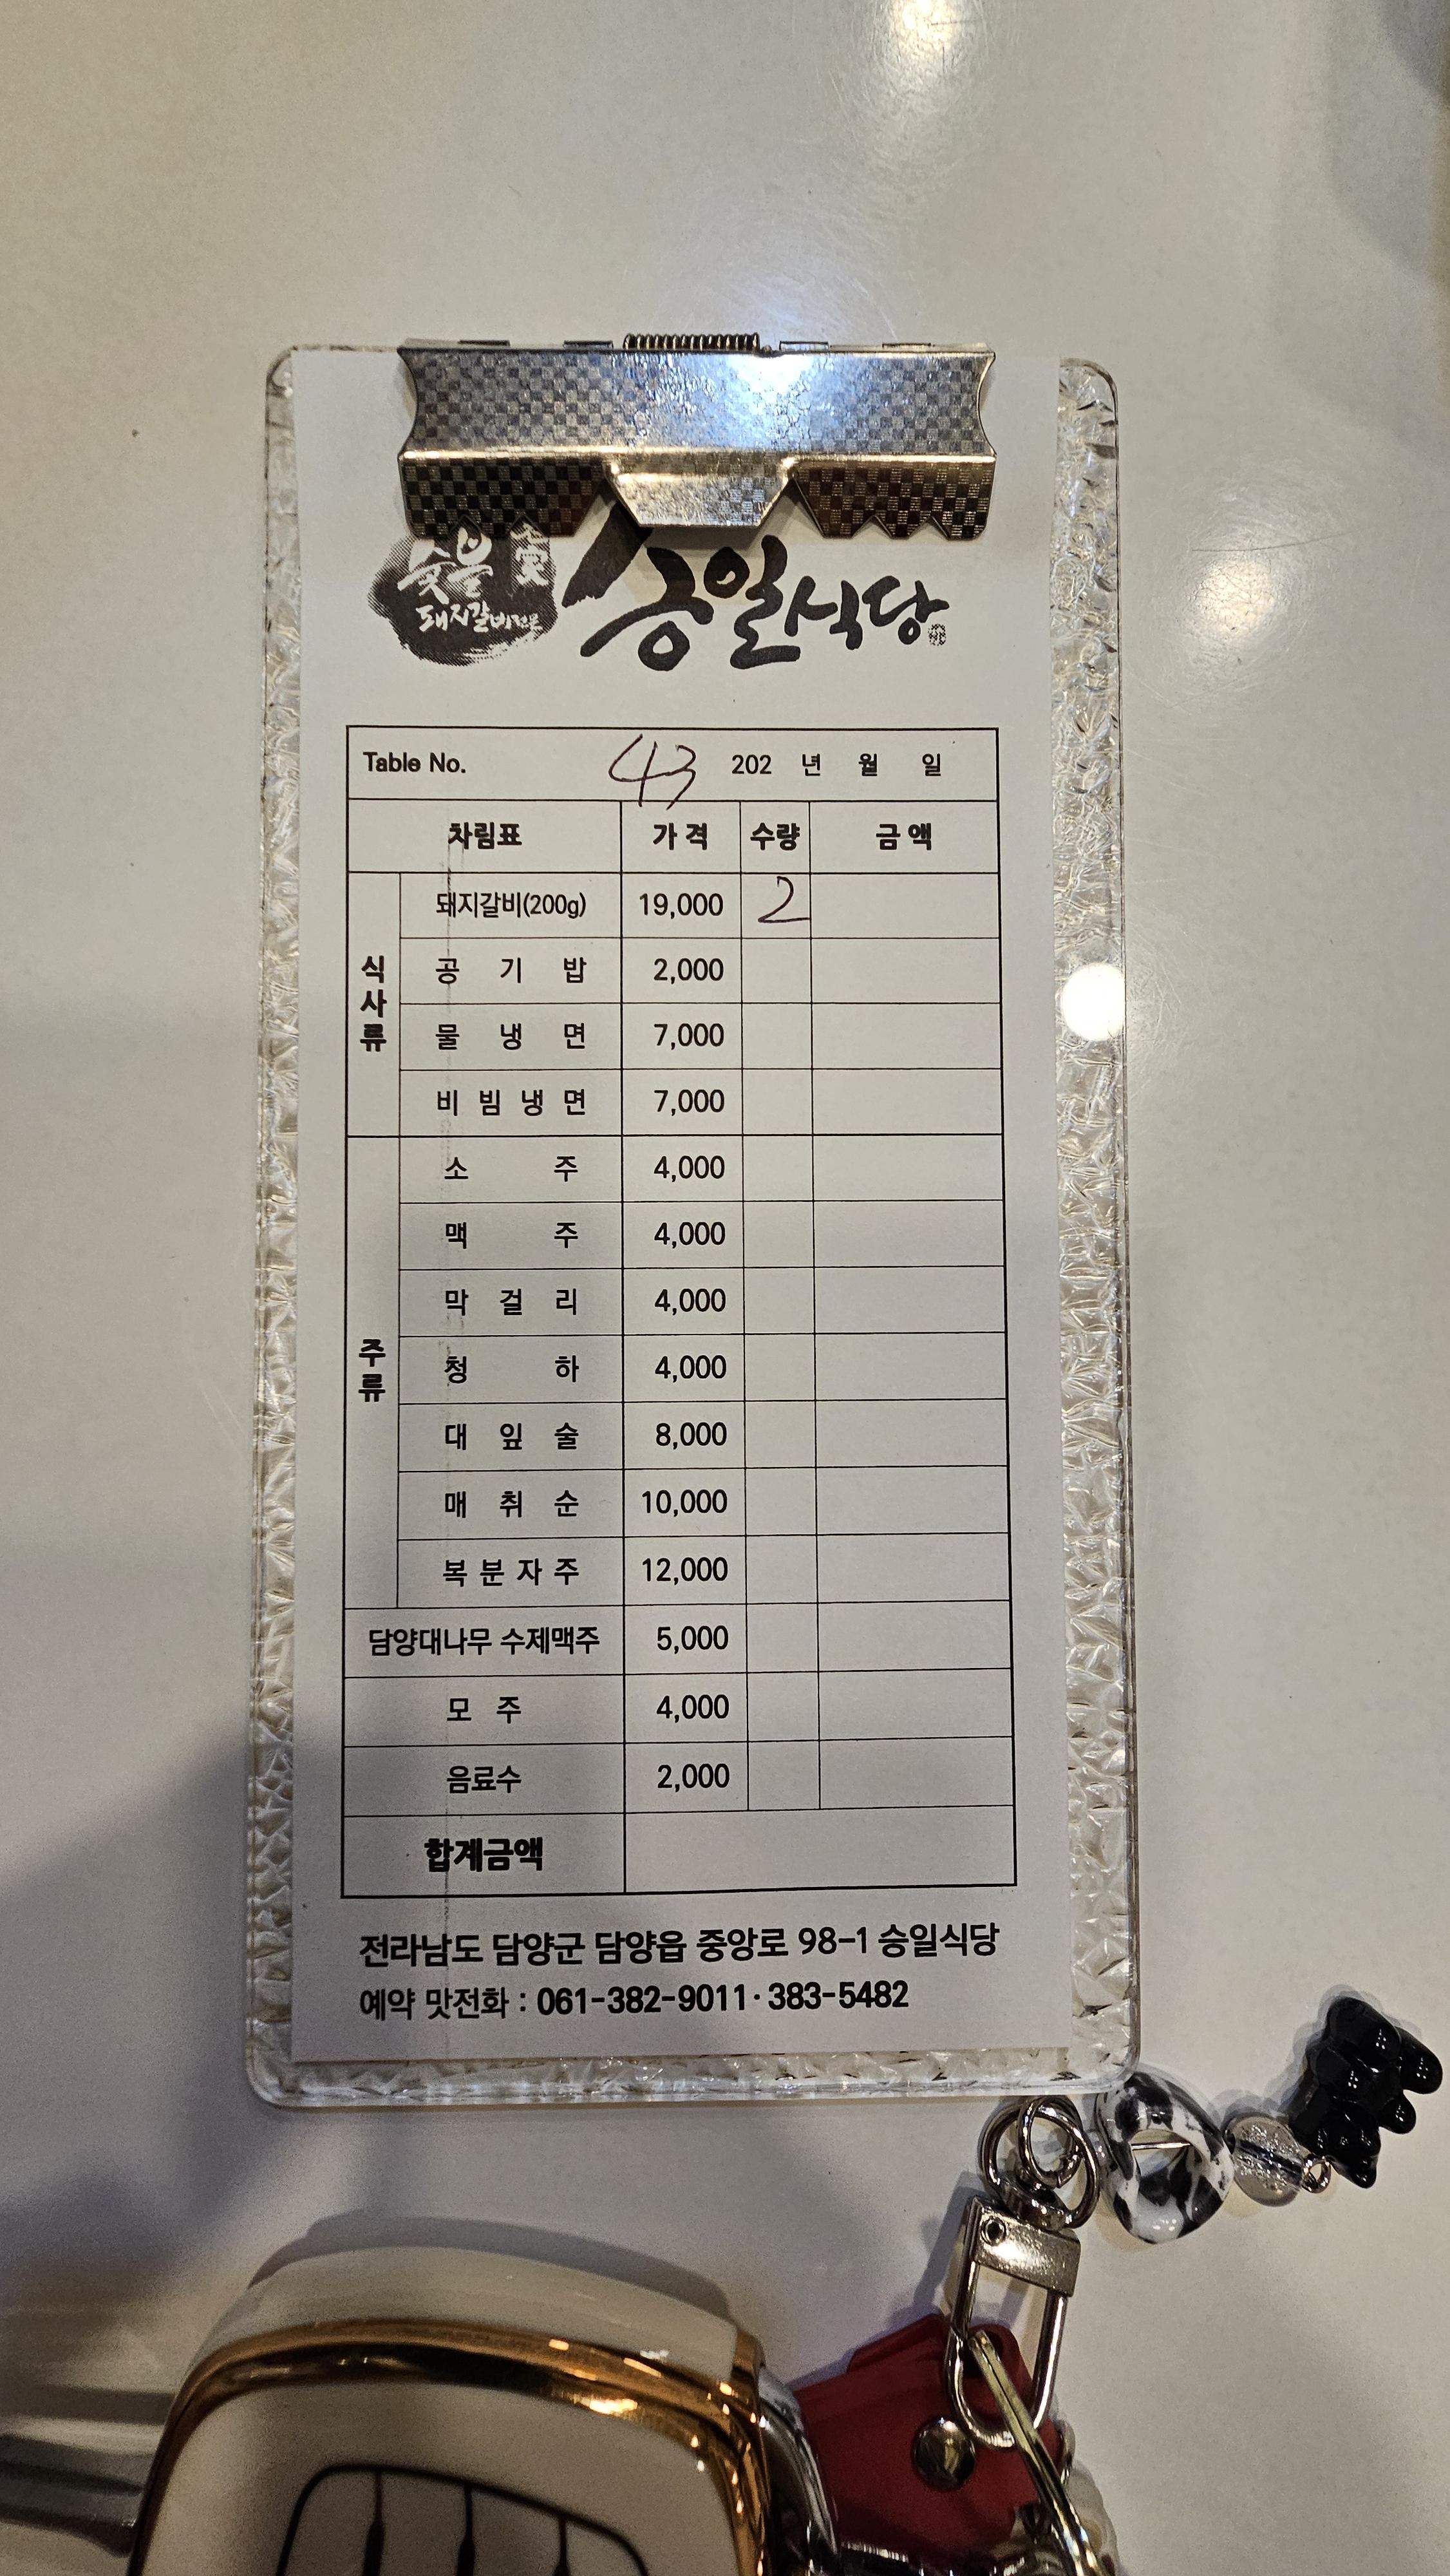 숯불
돼지갈비전문
승일식당
Table No. 43 202 년 월 일
차림표 가격 수량 금액
식사류
돼지갈비(200g) 19,000 2
공기밥 2,000
물냉면 7,000
비빔냉면 7,000
주류
소주 4,000
맥주 4,000
막걸리 4,000
청하 4,000
대잎술 8,000
매취순 10,000
복분자주 12,000
담양대나무 수제맥주 5,000
모주 4,000
음료수 2,000
합계금액
전라남도 담양군 담양읍 중앙로 98-1 승일식당
예약 맛전화 : 061-382-9011·383-5482